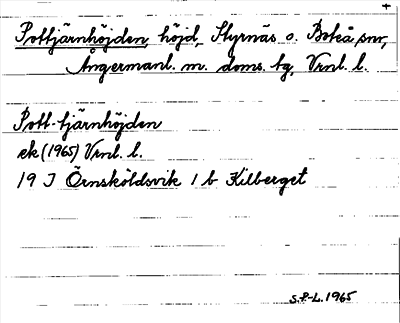 Pottjärnhöjden, höjd, Styrnäs o. Boteå snr,
Ångermanl. m. doms. tg, Vrnl. l.
Pott-tjärnhöjden
ek (1965) Vrnl. l.
19 J Örnsköldsvik 1 b Kilberget
S.P-L. 1965